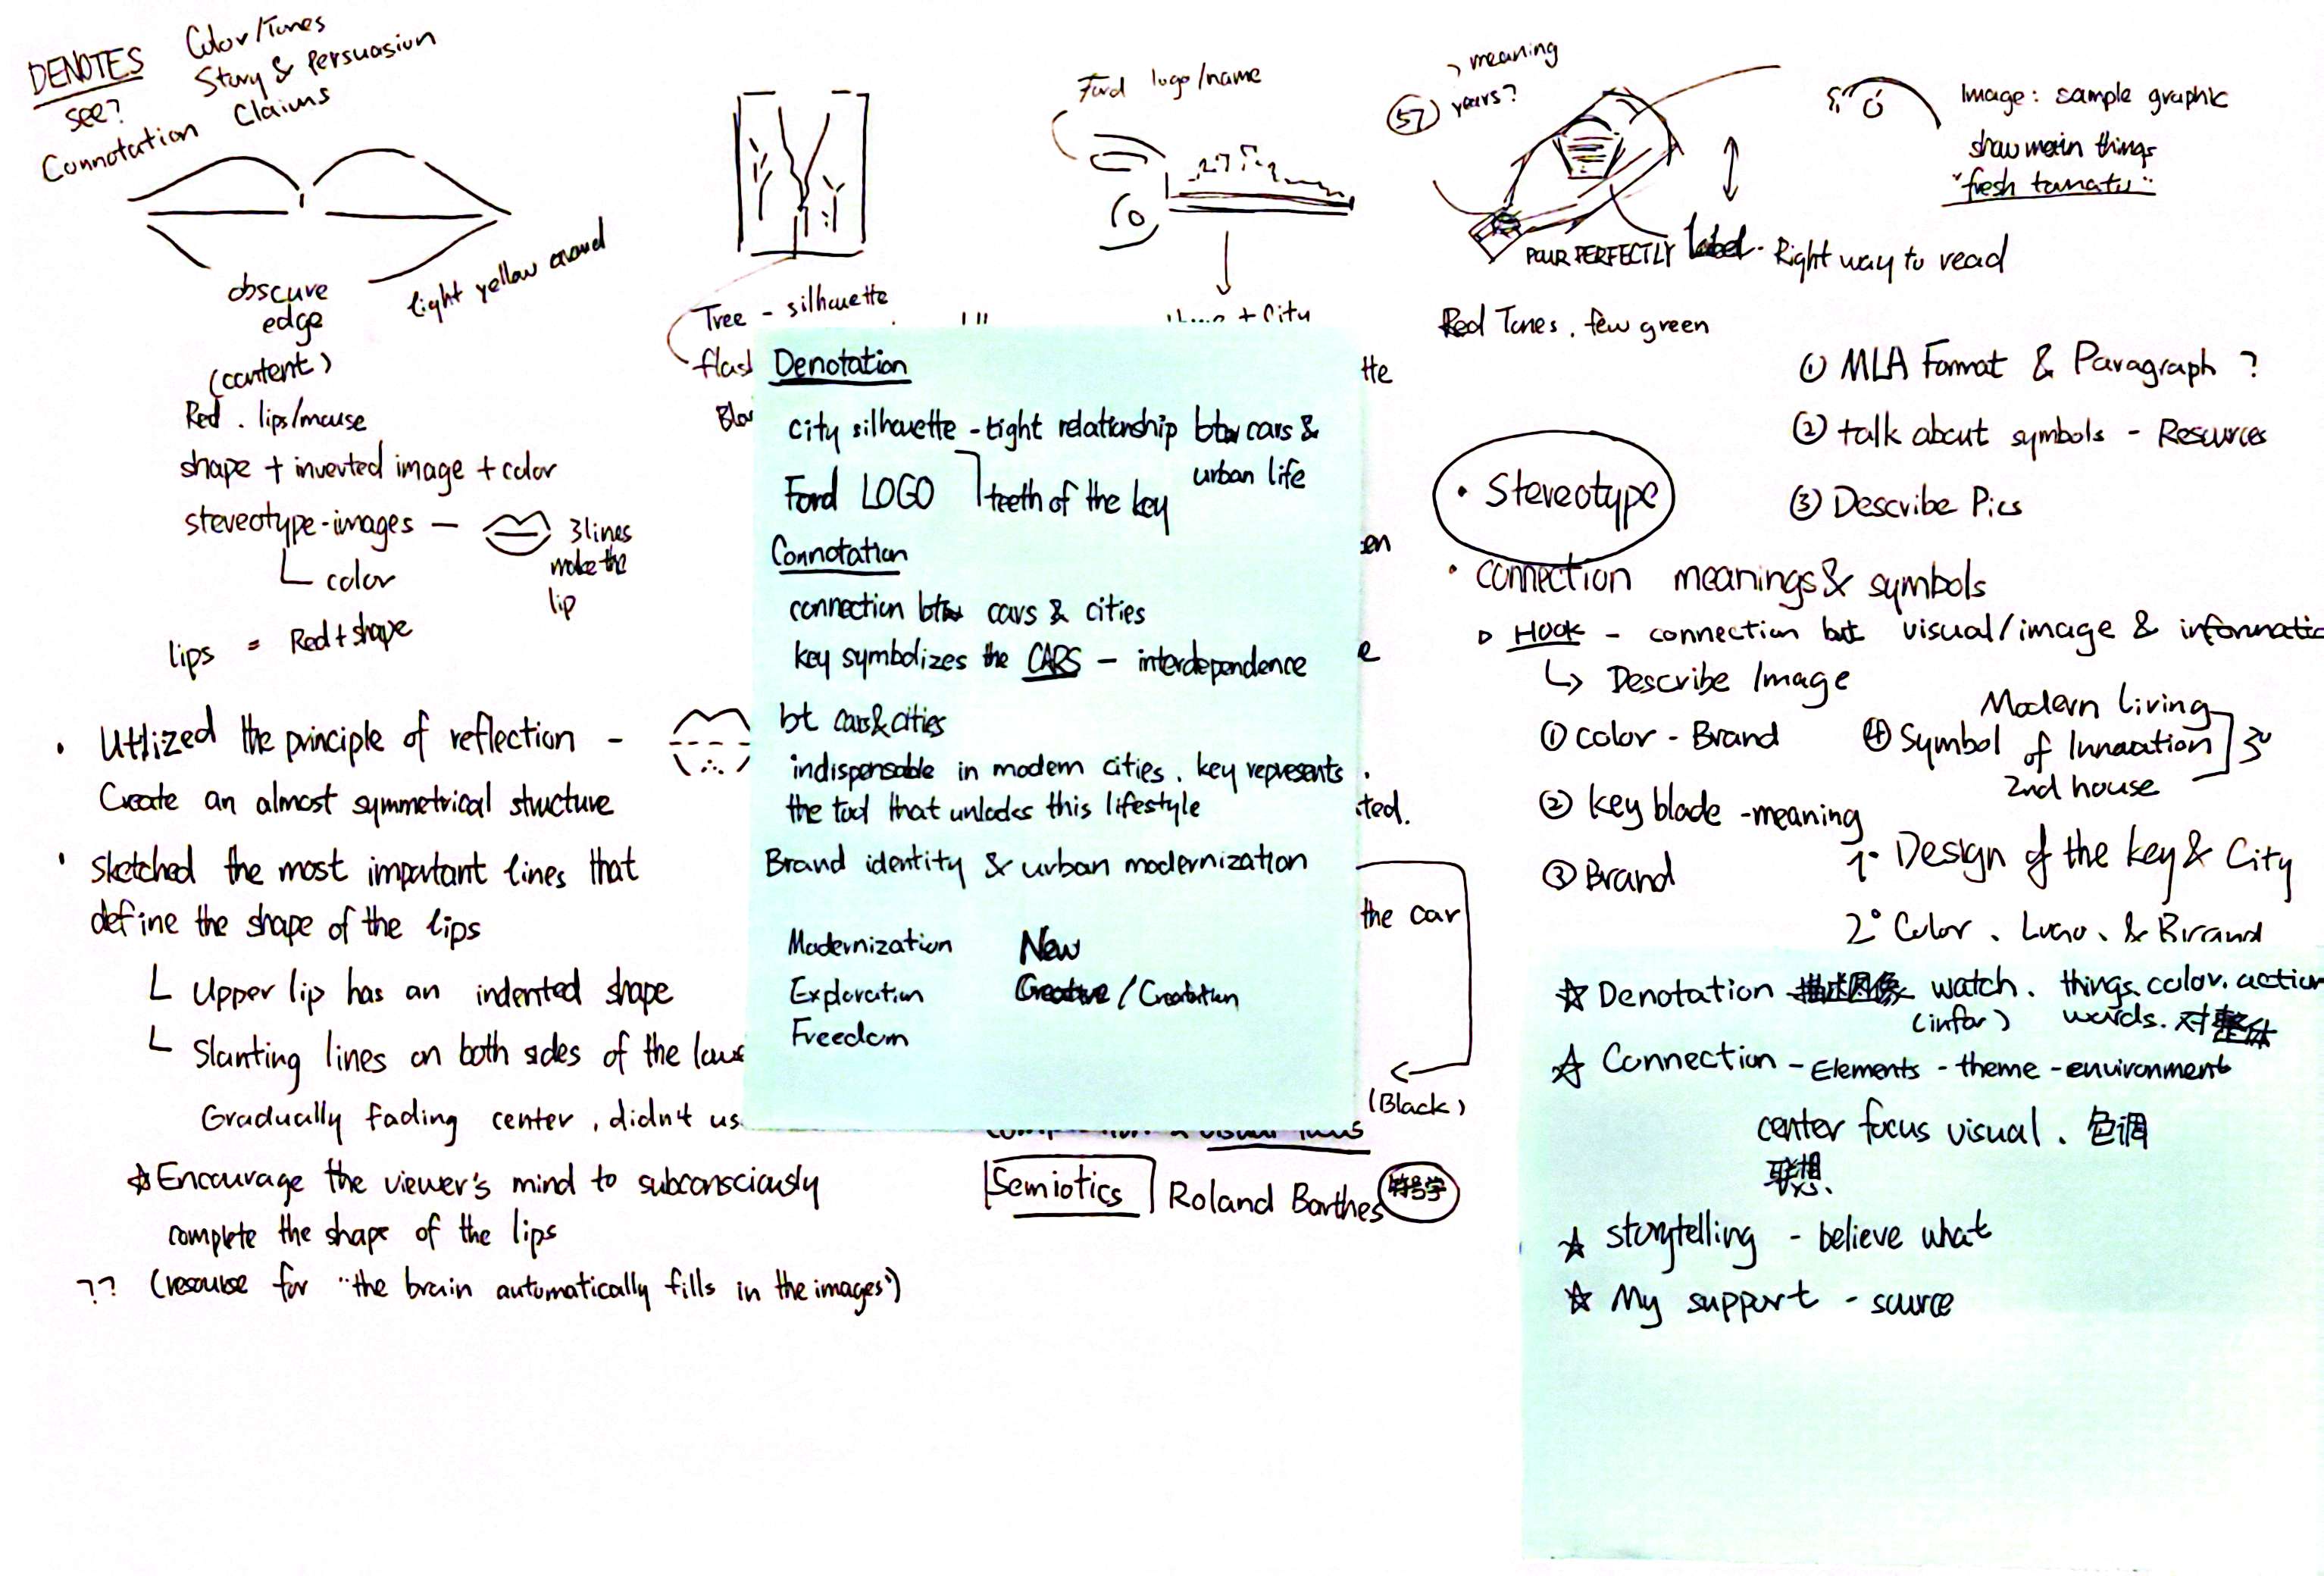 DENOTES
see?
Connotation
Color/Tones
Story & Persuasion
Claims
obscure
edge
light yellow around
(content)
Red . lips/mouse
shape + inverted image + color
stereotype-images — 3 lines
make the
lip
color
lips = Red + shape
• Utlized the principle of reflection -
Create an almost symmetrical structure
• sketched the most important lines that
define the shape of the lips
Upper lip has an indented shape
Slanting lines on both sides of the
Gradually fading center, didn't us
☆ Encourage the viewer's mind to subconsciously
complete the shape of the lips
?? (resourse for "the brain automatically fills in the images")
Tree - silhouette
Ford logo/name
+ City
Denotation
city silhouette - tight relationship btw cars &
urban life
Ford LOGO
teeth of the key
Connotation
connection btw cars & cities
key symbolizes the CARS — interdependence
bt cars&cities
indispensable in modern cities. key represents
the tool that unlocks this lifestyle
Brand identity & urban modernization
Modernization New
Exploration Creative / Creatation
Freedom
the car
(Black)
Semiotics Roland Barthes
meaning
57 years?
POUR PERFECTLY label - Right way to read
Red Tones . few green
Image: sample graphic
show main things
"fresh tomato"
① MLA Format & Paragraph ?
② talk about symbols - Resources
③ Describe Pics
• Stereotype
• connection meanings & symbols
Hook - connection but visual/image & informatio
↳ Describe Image
① color - Brand
② key blade - meaning
③ Brand
④ Symbol of Innovation
Modern living
2nd house
3°
1° Design of the key & City
2° Color、Logo、& Brand
☆ Denotation 描述图像 watch. things. color. action
(infor) words. 对整体
☆ Connection - Elements - theme - environment
center focus visual. 色调
联想.
☆ storytelling - believe what
☆ My support - source